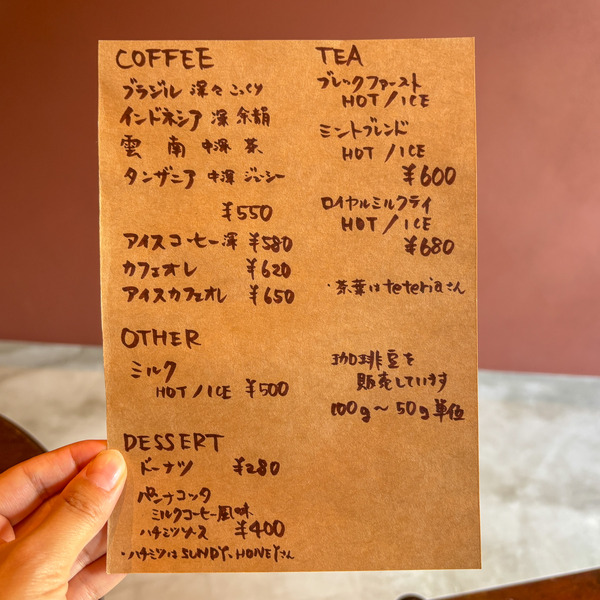 COFFEE
ブラジル 深々 こっくり
インドネシア 深 余韻
雲 南 中深 茶
タンザニア 中深 ジューシー
¥550
アイスコーヒー 深 ¥580
カフェオレ ¥620
アイスカフェオレ ¥650
OTHER
ミルク
HOT / ICE ¥500
DESSERT
ドーナツ ¥280
パンナコッタ
ミルクコーヒー風味
ハチミツソース ¥400
・ハチミツは SUNDY HONEYさん
TEA
ブレックファースト
HOT / ICE
ミントブレンド
HOT / ICE
¥600
ロイヤルミルクティ
HOT / ICE
¥680
・茶葉は teteriaさん
珈琲豆を
販売しています
100g〜 50g単位